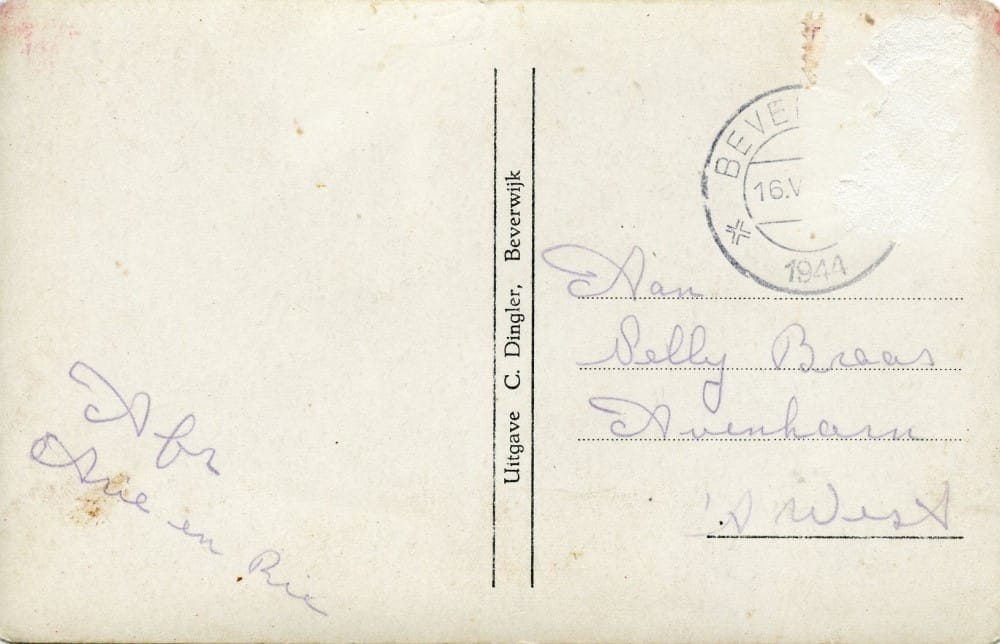 Afz
Arie en Rie
Uitgave C. Dingler, Beverwijk
BEVE
16.V
1944
Aan
Braas
Avenhorn
West